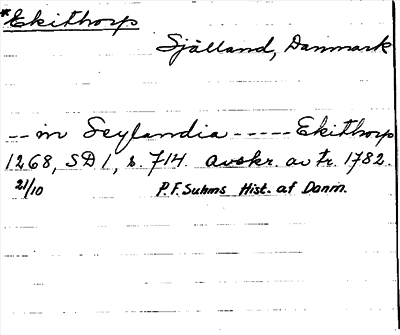 *Ekithorp
Själland, Danmark
-- in Seylandia ----- Ekithorp
1268, SD 1, s. 714. avskr. av fr. 1782.
21/10 P. F. Suhms Hist. af Danm.